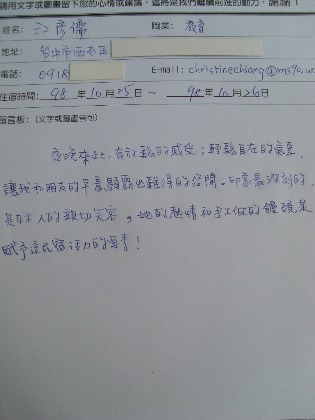 請用文字或圖畫留下您的心情或建議，這將是我們繼續前進的動力，謝謝！
姓名: 江彥儒 職業: 教育
地址: 台中市西屯區
電話: 0918 E-mail: christinechiang@ms76.
住宿時間: 98 年 10 月 25 日 ～ 98 年 10 月 26 日
留言板: (文字或圖畫皆可)
夜晚來此，有放鬆的感受；輕鬆自在的氣息，
讓我和朋友的早晨顯露出難得的悠閒。印象最深刻的，
是女主人的親切笑容，她的熱情和手工做的饅頭是
賦予這民宿活力的要素！